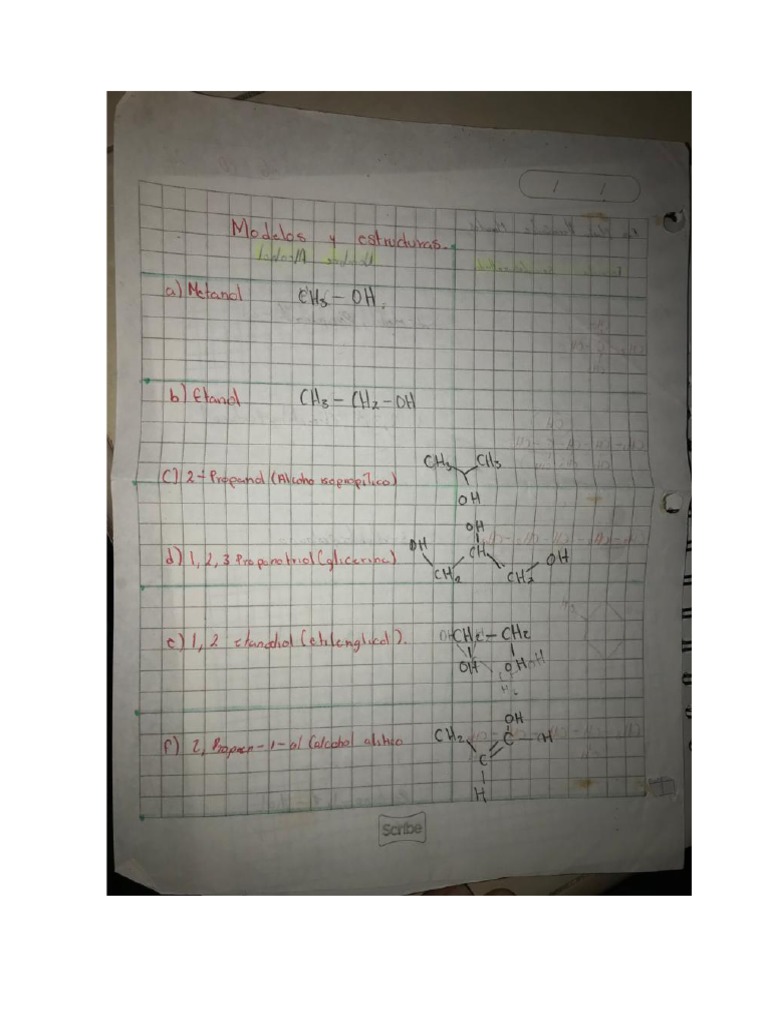 Modelos y estructuras.
a) Metanol CH3 – OH.
b) Etanol CH3 – CH2 – OH
CH3 CH3
c) 2-Propanol (Alcoho isopropílico)
OH
OH
OH CH OH
d) 1, 2, 3 Propanotriol (glicerina)
CH2 CH2
e) 1, 2 etanodiol (etilenglicol). CH2 – CH2
OH OH
OH
f) 2, Propen-1-ol (alcohol CH2 C – H
C
H
Scribe